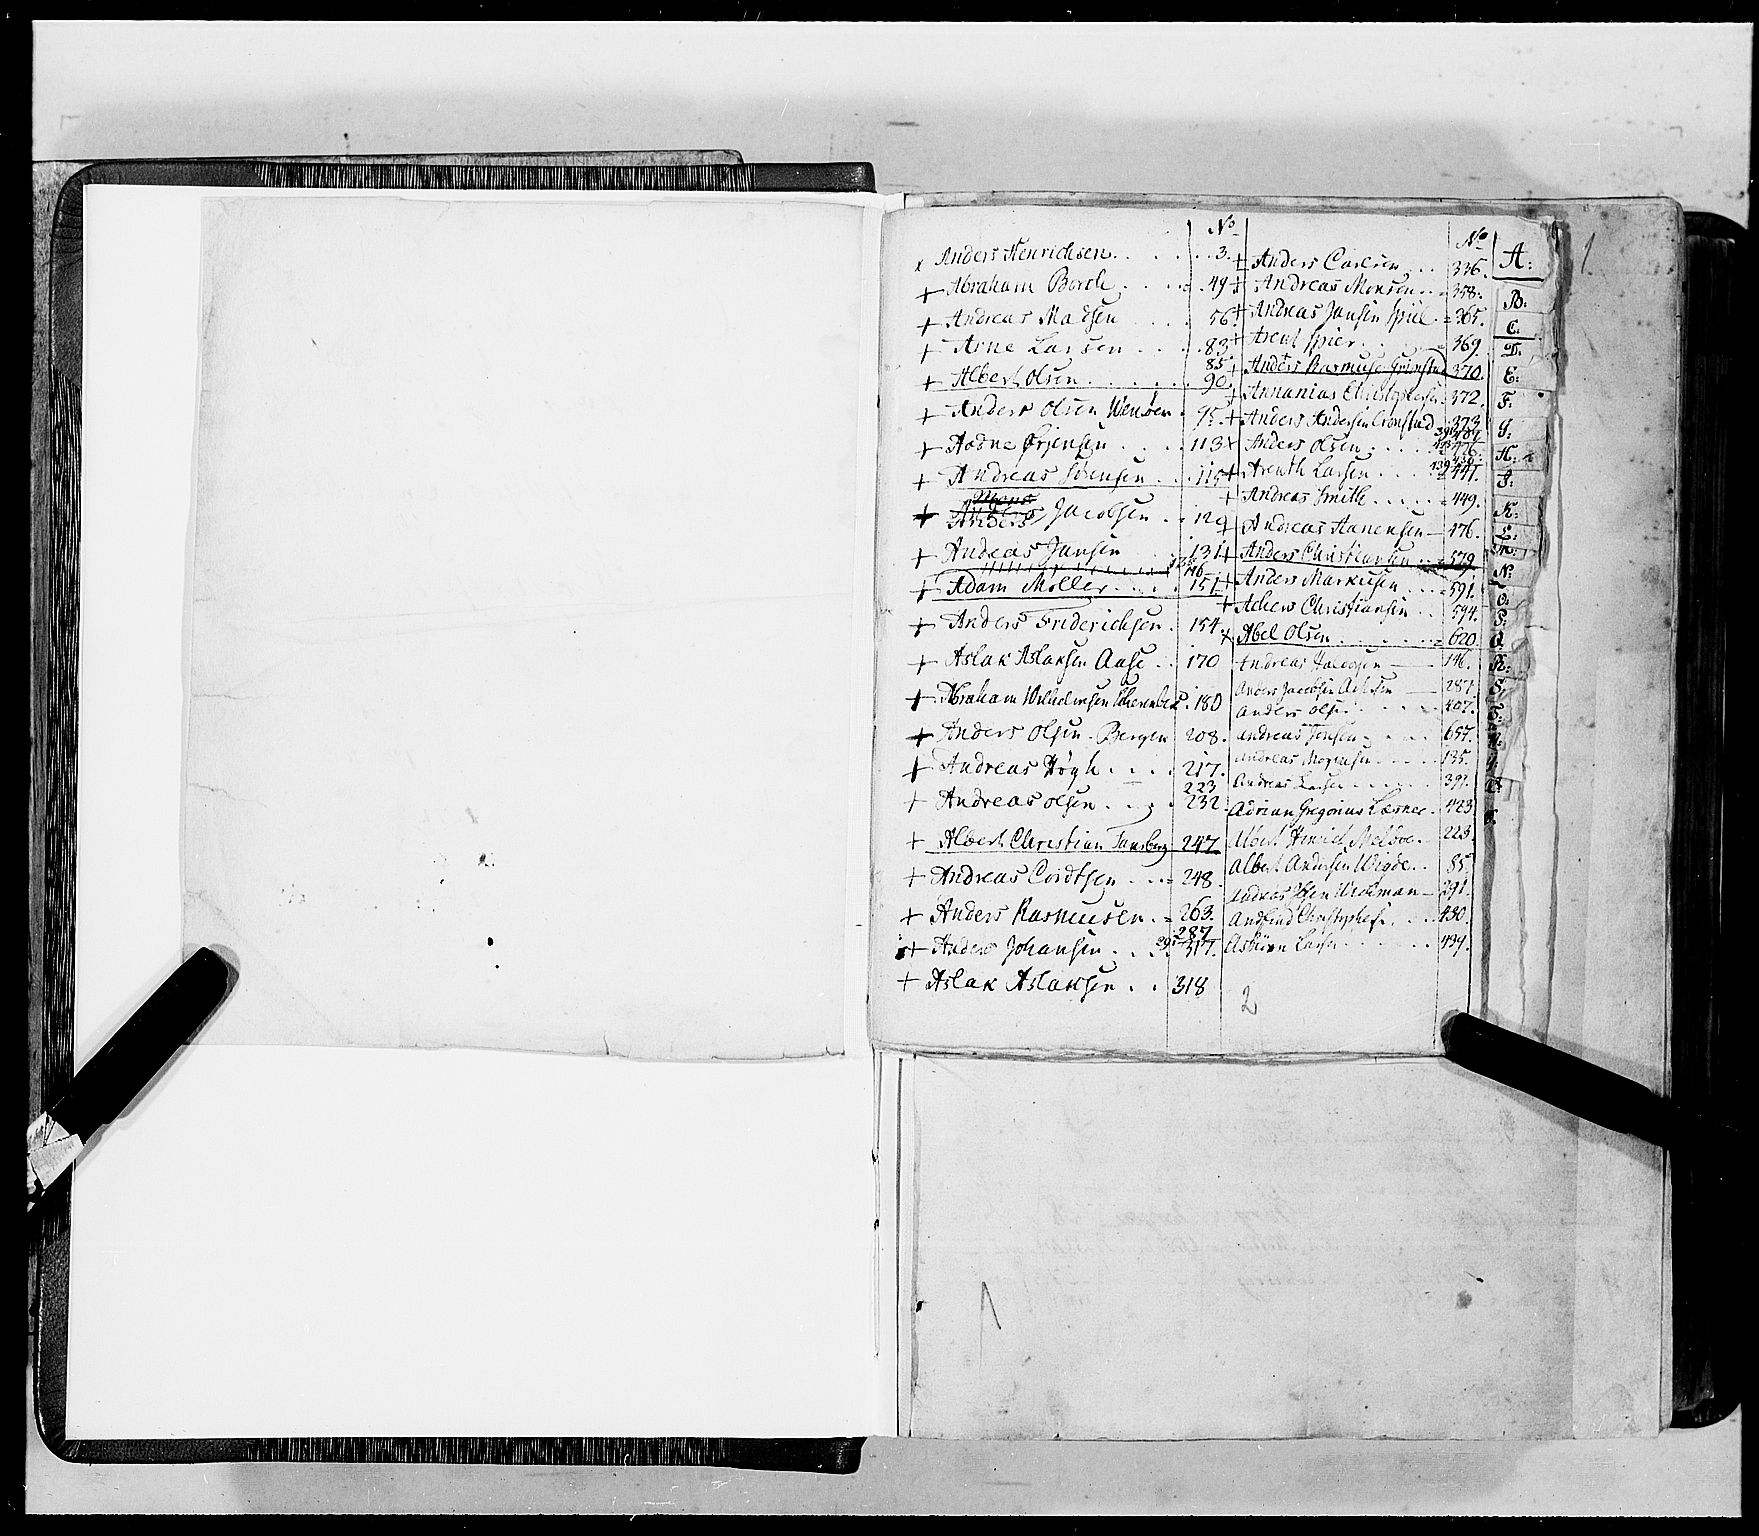 No
x Anders Henrichsen . . . 3.
+ Abraham Borch . . . 49
+ Andreas Madsen . . . 56
+ Arne Larsen . . . 83
85
+ Albert Olsen . . . 90
+ Anders Olsen . 95.
+ Aadne Ørjensen . . . 113
+ Andreas Sørensen . . 115
Mons
+ Anders Jacobsen . . 129
+ Andreas Jansen 131
146
+ Adam Møller . . . 151
+ Anders Friderichsen . 154
+ Aslak Aslaksen Aase . . 170
+ Abraham Wilhelmsen . 180
+ Anders Olsen Bergen 208.
+ Andreas Høgh . . . 217.
223
+ Andreas Olsen . . . 232
+ Albert Christian Tønsberg 247.
+ Andreas Cordtsen . . . 248.
+ Anders Rasmusen . . 263.
287
+ Anders Johansen . . . 317.
+ Aslak Aslaksen . . 318
No
+ Anders Carlsen . . . 336.
+ Andreas Monsen . . 358.
+ Andreas Jansen Spiel . 365.
+ Arent Spier . . . 369.
+ Anders Rasmuse Grimstad 370.
+ Annanias Christophersen 372.
+ Anders Andersen 373
x Anders Olsen . . .
+ Arenth Larsen . . . 441.
+ Andreas Smith . . . 449.
+ Andreas Aanensen — 476.
+ Anders Christiansen . . 579.
+ Anders Markusen . . . 591.
+ Achew Christiansen . . 594.
x Abel Olsen . . . 620.
Andreas Jacobsen — 146.
Anders Jacobsen — 287.
Anders Olsen . . . 407.
Andreas Jensen . . . 657.
Andreas Mogensen . . . 135.
Andreas Larsen . . . 391.
Adrian Gregorius Lærner . 423
Albert Hinrich . 223.
Albert Andersen Wigde . . 85.
Andreas Olsen — 291.
Christophers . . . 430.
Asbiørn Larsen . . . 434.
2
A:
B:
C:
D:
E:
F:
G:
H:
I:
K:
L:
M:
N:
O:
P:
Q:
R:
S:
T:
1